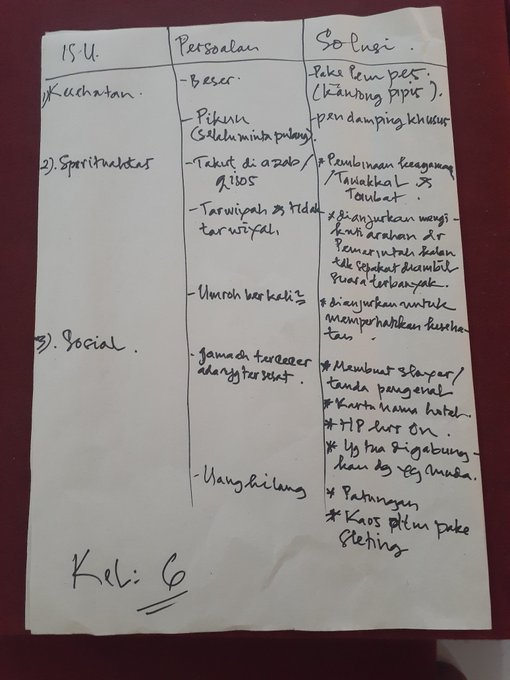 ISU. Persoalan Solusi.
1) Kesehatan. - Beser. - Pake Pempes.
(Kantong pipis).
- Pikun - pendamping khusus
(selalu minta pulang).
2). Spiritualitas - Takut di azab/ * Pembinaan keagamaan
qisos / Tawakkal &
Taubat.
- Tarwiyah & tidak * dianjurkan mengi-
tarwiyah kuti arahan dr
Pemerintah kalau
tdk sepakat diambil
suara terbanyak.
- Umroh berkali2 * dianjurkan untuk
memperhatikan keseha-
tan.
3). Sosial. - Jamaah tercecer * Membuat slayer/
ada yg tersesat. tanda pengenal
* Kartu nama hotel.
* HP hrs on.
* Yg tua digabung-
kan dg yg muda.
- Uang hilang * Patungan
* Kaos dlm pake
sleting
Kel: 6